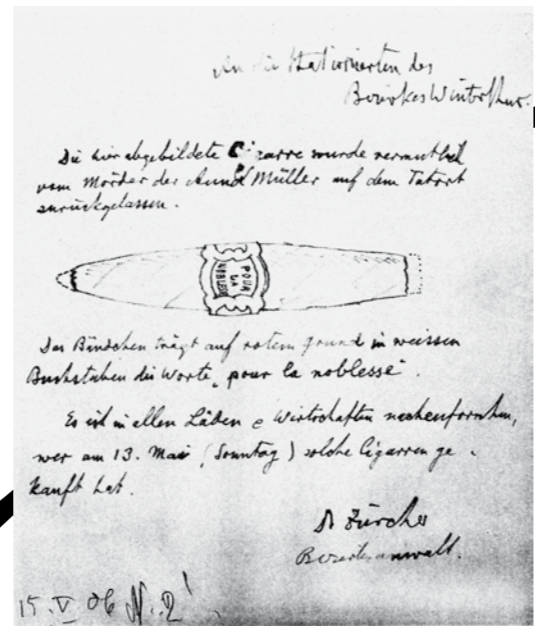 An die Stationierten des
Bezirkes Winterthur.
Die hier abgebildete Cigarre wurde vermutlich
vom Mörder der Anna Müller auf dem Tatort
zurückgelassen.
POUR
LA
NOBLESSE
Das Bändchen trägt auf rotem Grund in weissen
Buchstaben die Worte „pour la noblesse“.
Es ist in allen Läden & Wirtschaften nachzuforschen,
wer am 13. Mai (Sonntag) solche Cigarren ge-
kauft hat.
Zürcher
Bezirksanwalt.
15. V 06 N. 2